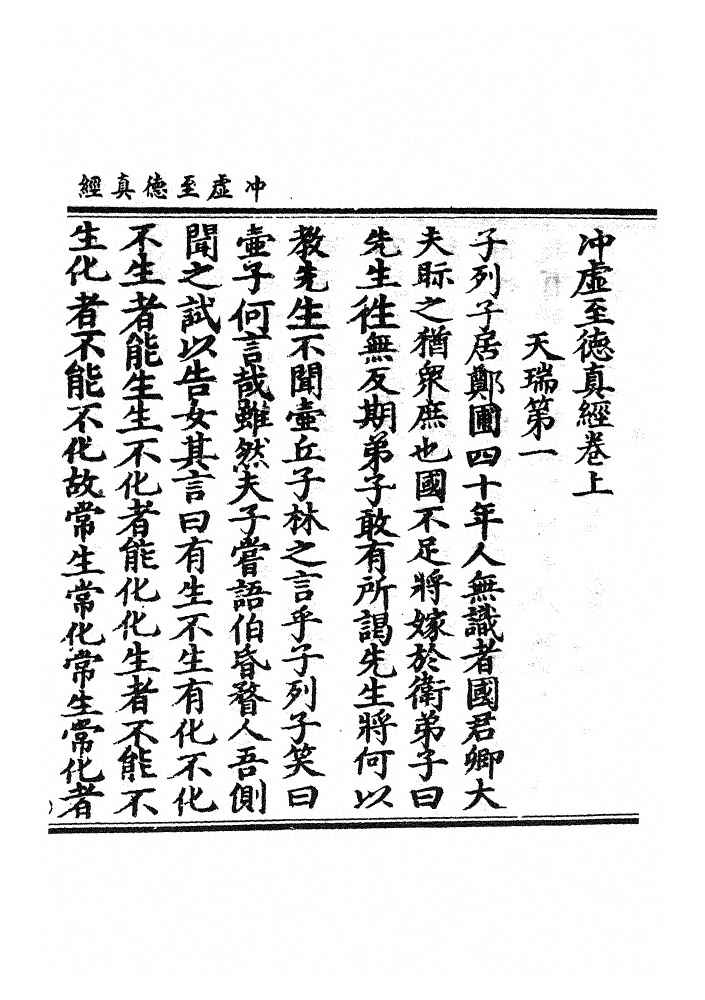 冲虛至德真經
冲虛至徳真經卷上
天瑞第一
子列子居鄭圃四十年人無識者國君卿大
夫眎之猶衆庶也國不足將嫁於衛弟子曰
先生徃無反期弟子敢有所謁先生將何以
教先生不聞壷丘子林之言乎子列子笑曰
壷子何言哉雖然夫子嘗語伯昏瞀人吾側
聞之試以告女其言曰有生不生有化不化
不生者能生生不化者能化化生者不能不
生化者不能不化故常生常化常生常化者